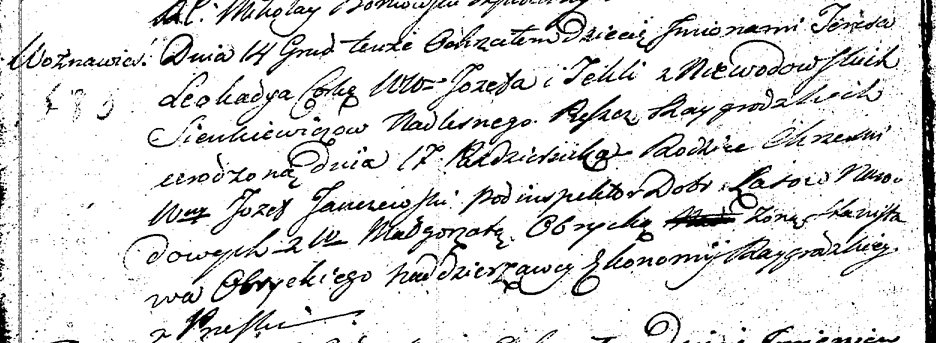 Mikołay
Woźnawieś. Dnia 14 Grud tenże Ochrzciłem dziecię Jmionami Teresa
Leokadya Córkę WW Józefa i Tekli z Niewodowskich
Sienkiewiczów Nadleśnego Raygrodzkich
urodzoną dnia 17 Października Rodzice Chrzestni
Józef Janczewski podinspektor Dobr Lasów Naro-
dowych z W Małgorzatą Obrycką Żoną Stanisła
wa Obryckiego Naddzierżawcy Ekonomij Raygrodzkiey
z